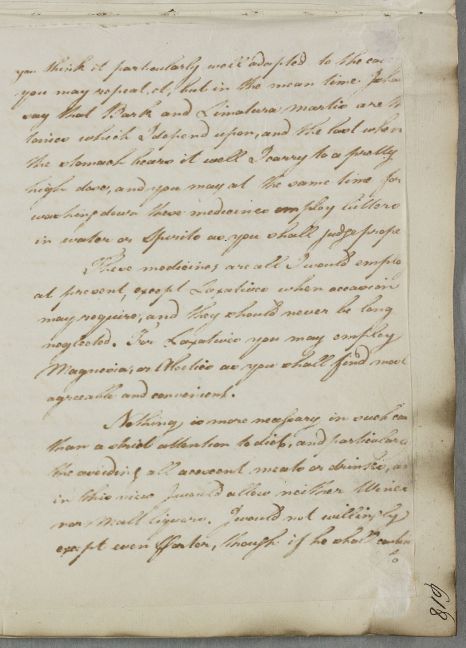 you think it particularly well adapted to the ca
you may repeat it, but in the mean time I shal
say that Bark and Limatura martis are th
tonics which I depend upon, and the last when
the stomach bears it well I carry to a pretty
high dose, and you may at the same time for
washing down these medicines employ bitters
in water or Spirits as you shall judge prope
These medicines are all I would emplo
at present, except Laxatives when occasion
may require, and they should never be long
neglected. For Laxatives you may employ
Magnesia, or Aloetics as you shall find most
agreeable and convenient.
Nothing is more necessary in such cas
than a strict attention to diet, and particularl
the avoiding all acescent meats or drinks, an
in this view I would allow neither Wines
nor Malt liquors. I would not willingly
except even Porter, though if he shall
to
819